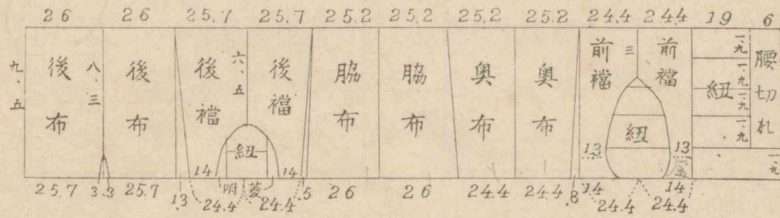 26 26 25.7 25.7 25.2 25.2 25.2 25.2 24.4 24.4 19 6
九、五
後布
八、三
後布
後襠
六、五
後襠
脇布
脇布
奥布
奥布
前襠
三
前襠
紐
一、九
一、九
一、九
一、九
腰切れ
一、九
紐
紐
14 14
明 菱
13 13
25.7 3.3 25.7 .13 24.4 24.4 .5 26 26 24.4 24.4 .8 14 24.4 24.4 14